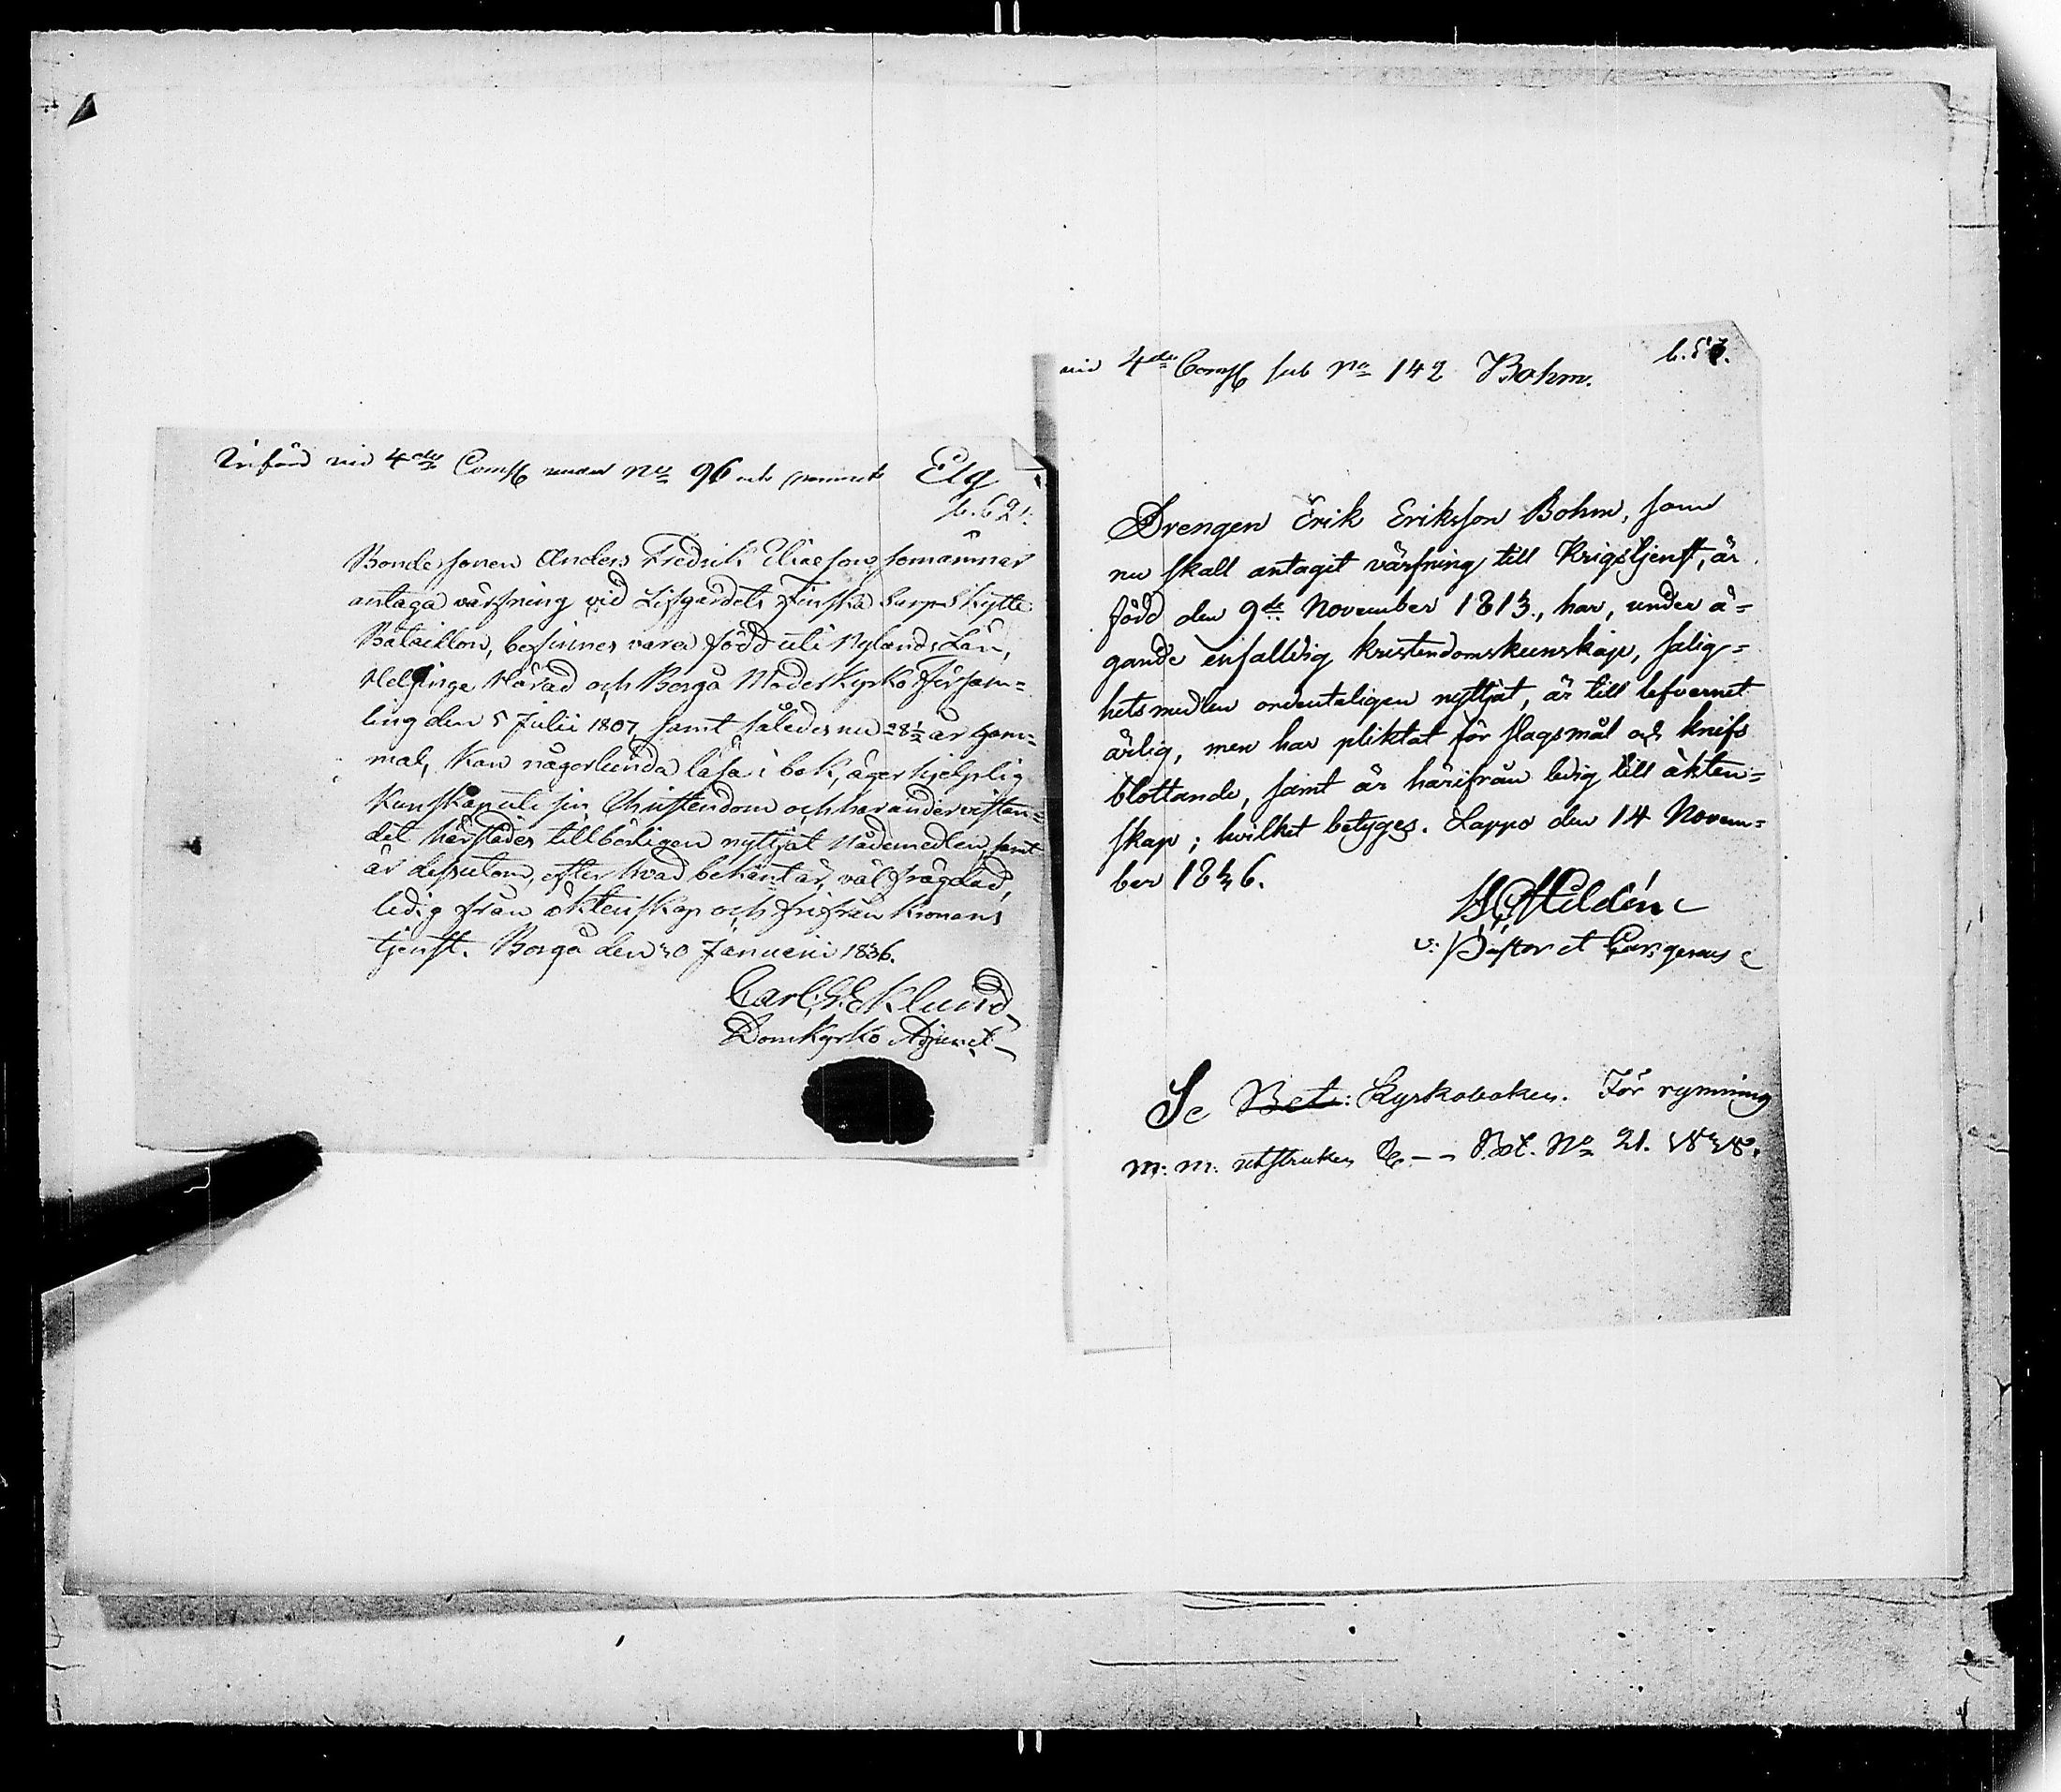 Införd vid 4de Comp under No 96 och namnet Elg
b. 62.
Bondesonen Anders Fredrik Eliaeson, som ämnar
antaga värfning vid Lifgardets Finska Skarpskytte
Bataillon, befinnes vara född uti Nylands Län,
Helsinge Härad och Borgå Moderkyrko Försams=
ling den 5 Julii 1807, samt således nu 28 1/2 år gam=
mal, kan någorlunda läsa i bok, äger hjelplig
kunskap uti sin Christendom och har under vistan=
det härstädes tillbörligen nyttjat Nådemedlen, samt
är dessutom, efter hvad bekant är, väl frägdad,
ledig från äktenskap och fri från Kronans
tjenst. Borgå den 30 Januarii 1836.
Carl G. Eklund
Domkyrko Adjunct
vid 4de Comp sub No 142 Bohm.
b. 57.
Drengen Erik Eriksson Bohm, som
nu skall antagit värfning till Krigstjenst, är
född den 9de November 1813., har, under ä=
gande enfalldig kristendomskunskap, salig=
hetsmedlen ordenteligen nyttjat, är till lefvernet
ärlig, men har pliktat för slagsmål och knifs
blottande, samt är härifrån ledig till äkten=
skap; hvilket betyges. Lappo den 14 Novem=
ber 1836.
Hildén
v: Pastor et
Se Bet: Kyrkoboken. För rymning
m: m: utstruken &. -- Bet. No 21. 1838.